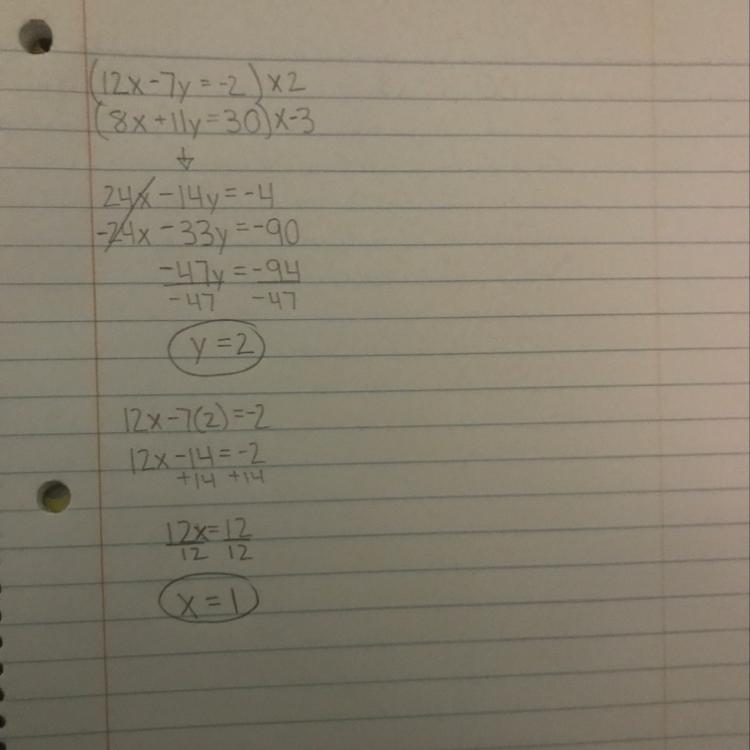 (12x-7y=-2)x2
(8x+11y=30)x-3
↓
24x-14y=-4
-24x-33y=-90
-47y=-94
-47 -47
y=2
12x-7(2)=-2
12x-14=-2
+14 +14
12x=12
12 12
x=1